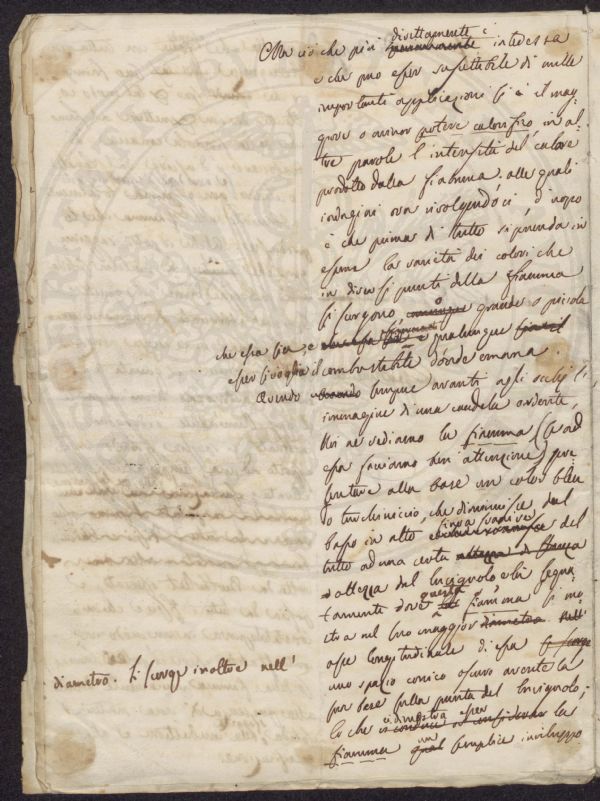 Ma ciò che più direttamente c' interessa
e che può esser suscettibile di mille
importanti applicazioni si è il mag-
giore o minor potere calorifico, in al-
tre parole l' intensità del calore
prodotto dalla fiamma. alle quali
indagini ora rivolgendoci, d' uopo
è che prima di tutto si prenda in
esame la varietà dei colori che
in diversi punti della fiamma
si scorgono, comunque grande o piccola
che essa sia e qualunque
esser si voglia il combustibile donde emana.
Avendo sempre avanti agli occhi l'
immagine di una candela ardente,
Noi ne vediamo la fiamma (se ad
essa facciamo ben attenzione) pre-
sentare alla base un color bleu
o turchiniccio, che diminuisce dal
basso in alto, e svanisce del
tutto ad una certa
altezza del lucignolo e lì segna-
tamente dove questa fiamma si mo-
stra nel suo maggior
diametro. Si scorge inoltre nell'
asse longitudinale di essa
uno spazio conico oscuro avente la
sua base sulla punta del lucignolo;
lo che ci dimostra esser la
fiamma un semplice inviluppo